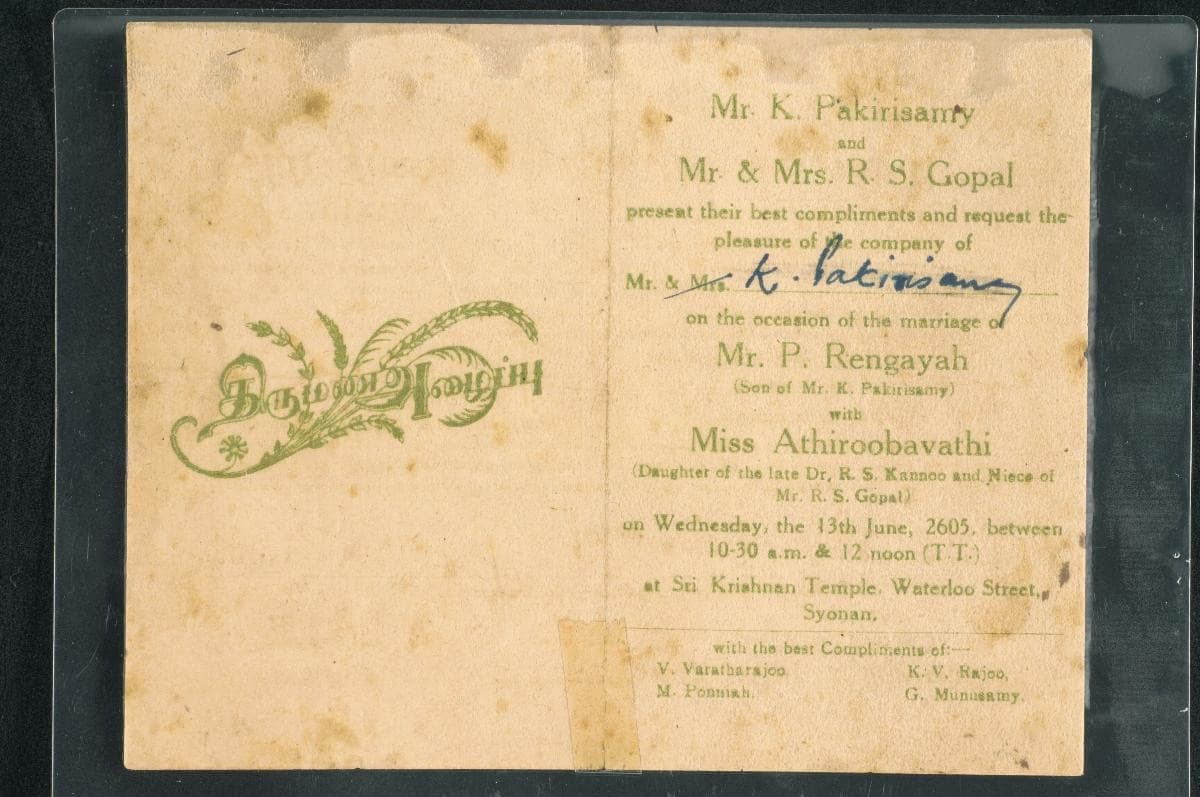 திருமணஅழைப்பு
Mr. K. Pakirisamy
and
Mr. & Mrs. R. S. Gopal
present their best compliments and request the
pleasure of the company of
Mr. & Mrs. K. Pakirisamy
on the occasion of the marriage of
Mr. P. Rengayah
(Son of Mr. K. Pakirisamy)
with
Miss Athiroobavathi
(Daughter of the late Dr, R. S. Kannoo and Niece of
Mr. R. S. Gopal)
on Wednesday, the 13th June, 2605, between
10-30 a.m. & 12 noon (T.T.)
at Sri Krishnan Temple, Waterloo Street,
Syonan,
with the best Compliments of:—
V. Varatharajoo. K. V. Rajoo,
M. Ponniah. G. Munusamy.